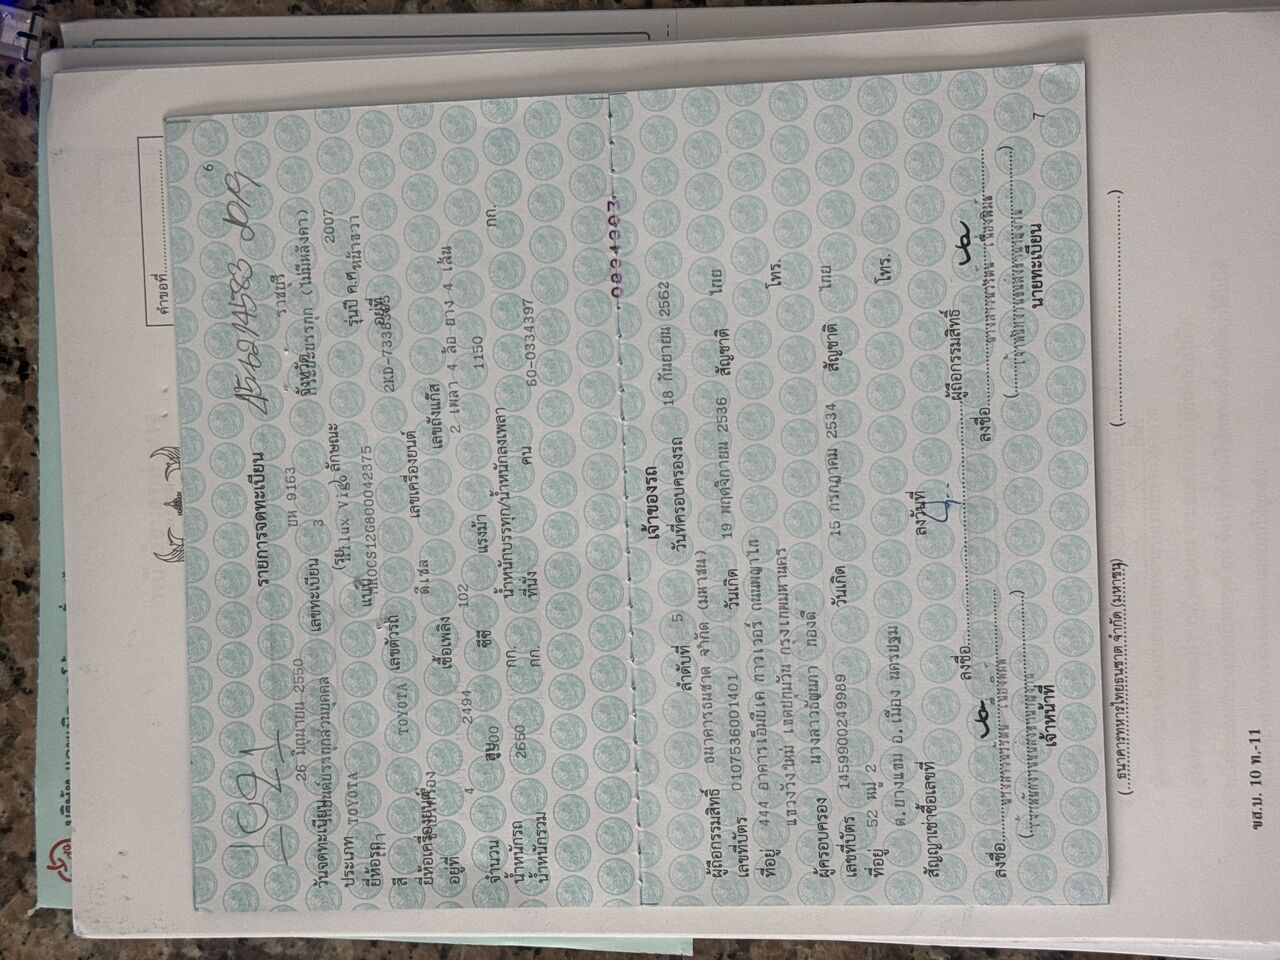 คำขอที่
6
รายการจดทะเบียน
วันจดทะเบียน 26 มิถุนายน 2550 เลขทะเบียน บห 9163 จังหวัด ราชบุรี
ประเภท รถยนต์บรรทุกส่วนบุคคล 3 ลักษณะ กระบะบรรทุก (ไม่มีหลังคา)
ยี่ห้อรถ TOYOTA แบบ (รุ่น Hilux Vigo) รุ่นปี ค.ศ. 2007
สี เทา เลขตัวรถ อยู่ที่ หน้าขวา
ยี่ห้อเครื่องยนต์ TOYOTA เลขเครื่องยนต์
อยู่ที่ เชื้อเพลิง ดีเซล เลขถังแก๊ส
จำนวน 4 สูบ 2494 ซีซี 102 แรงม้า 2 เพลา 4 ล้อ ยาง 4 เส้น
น้ำหนักรถ กก. น้ำหนักบรรทุก/น้ำหนักลงเพลา 1150 กก.
น้ำหนักรวม 2650 กก. ที่นั่ง คน 60-0334397
เจ้าของรถ
ลำดับที่ 5 วันที่ครอบครองรถ 18 กันยายน 2562
ผู้ถือกรรมสิทธิ์ ธนาคารธนชาต จำกัด (มหาชน)
เลขที่บัตร 0107536001401 วันเกิด 19 พฤศจิกายน 2536 สัญชาติ ไทย
ที่อยู่ 444 อาคารเอ็มบีเค ทาวเวอร์ ถนนพญาไท โทร.
แขวงวังใหม่ เขตปทุมวัน กรุงเทพมหานคร
ผู้ครอบครอง นางสาวธัญนภา ทองดี
เลขที่บัตร 1459900249989 วันเกิด 15 กรกฎาคม 2534 สัญชาติ ไทย
ที่อยู่ 52 หมู่ 2 โทร.
ต.ยางแขม อ.เมือง นครปฐม
สัญญาเช่าซื้อเลขที่ ลงวันที่
ลงชื่อ ผู้ถือกรรมสิทธิ์
ลงชื่อ ลงชื่อ
เจ้าหน้าที่ นายทะเบียน
7
(...ธนาคารทหารไทยธนชาต จำกัด (มหาชน)...) (...)
ขส.บ. 10 ท.-11